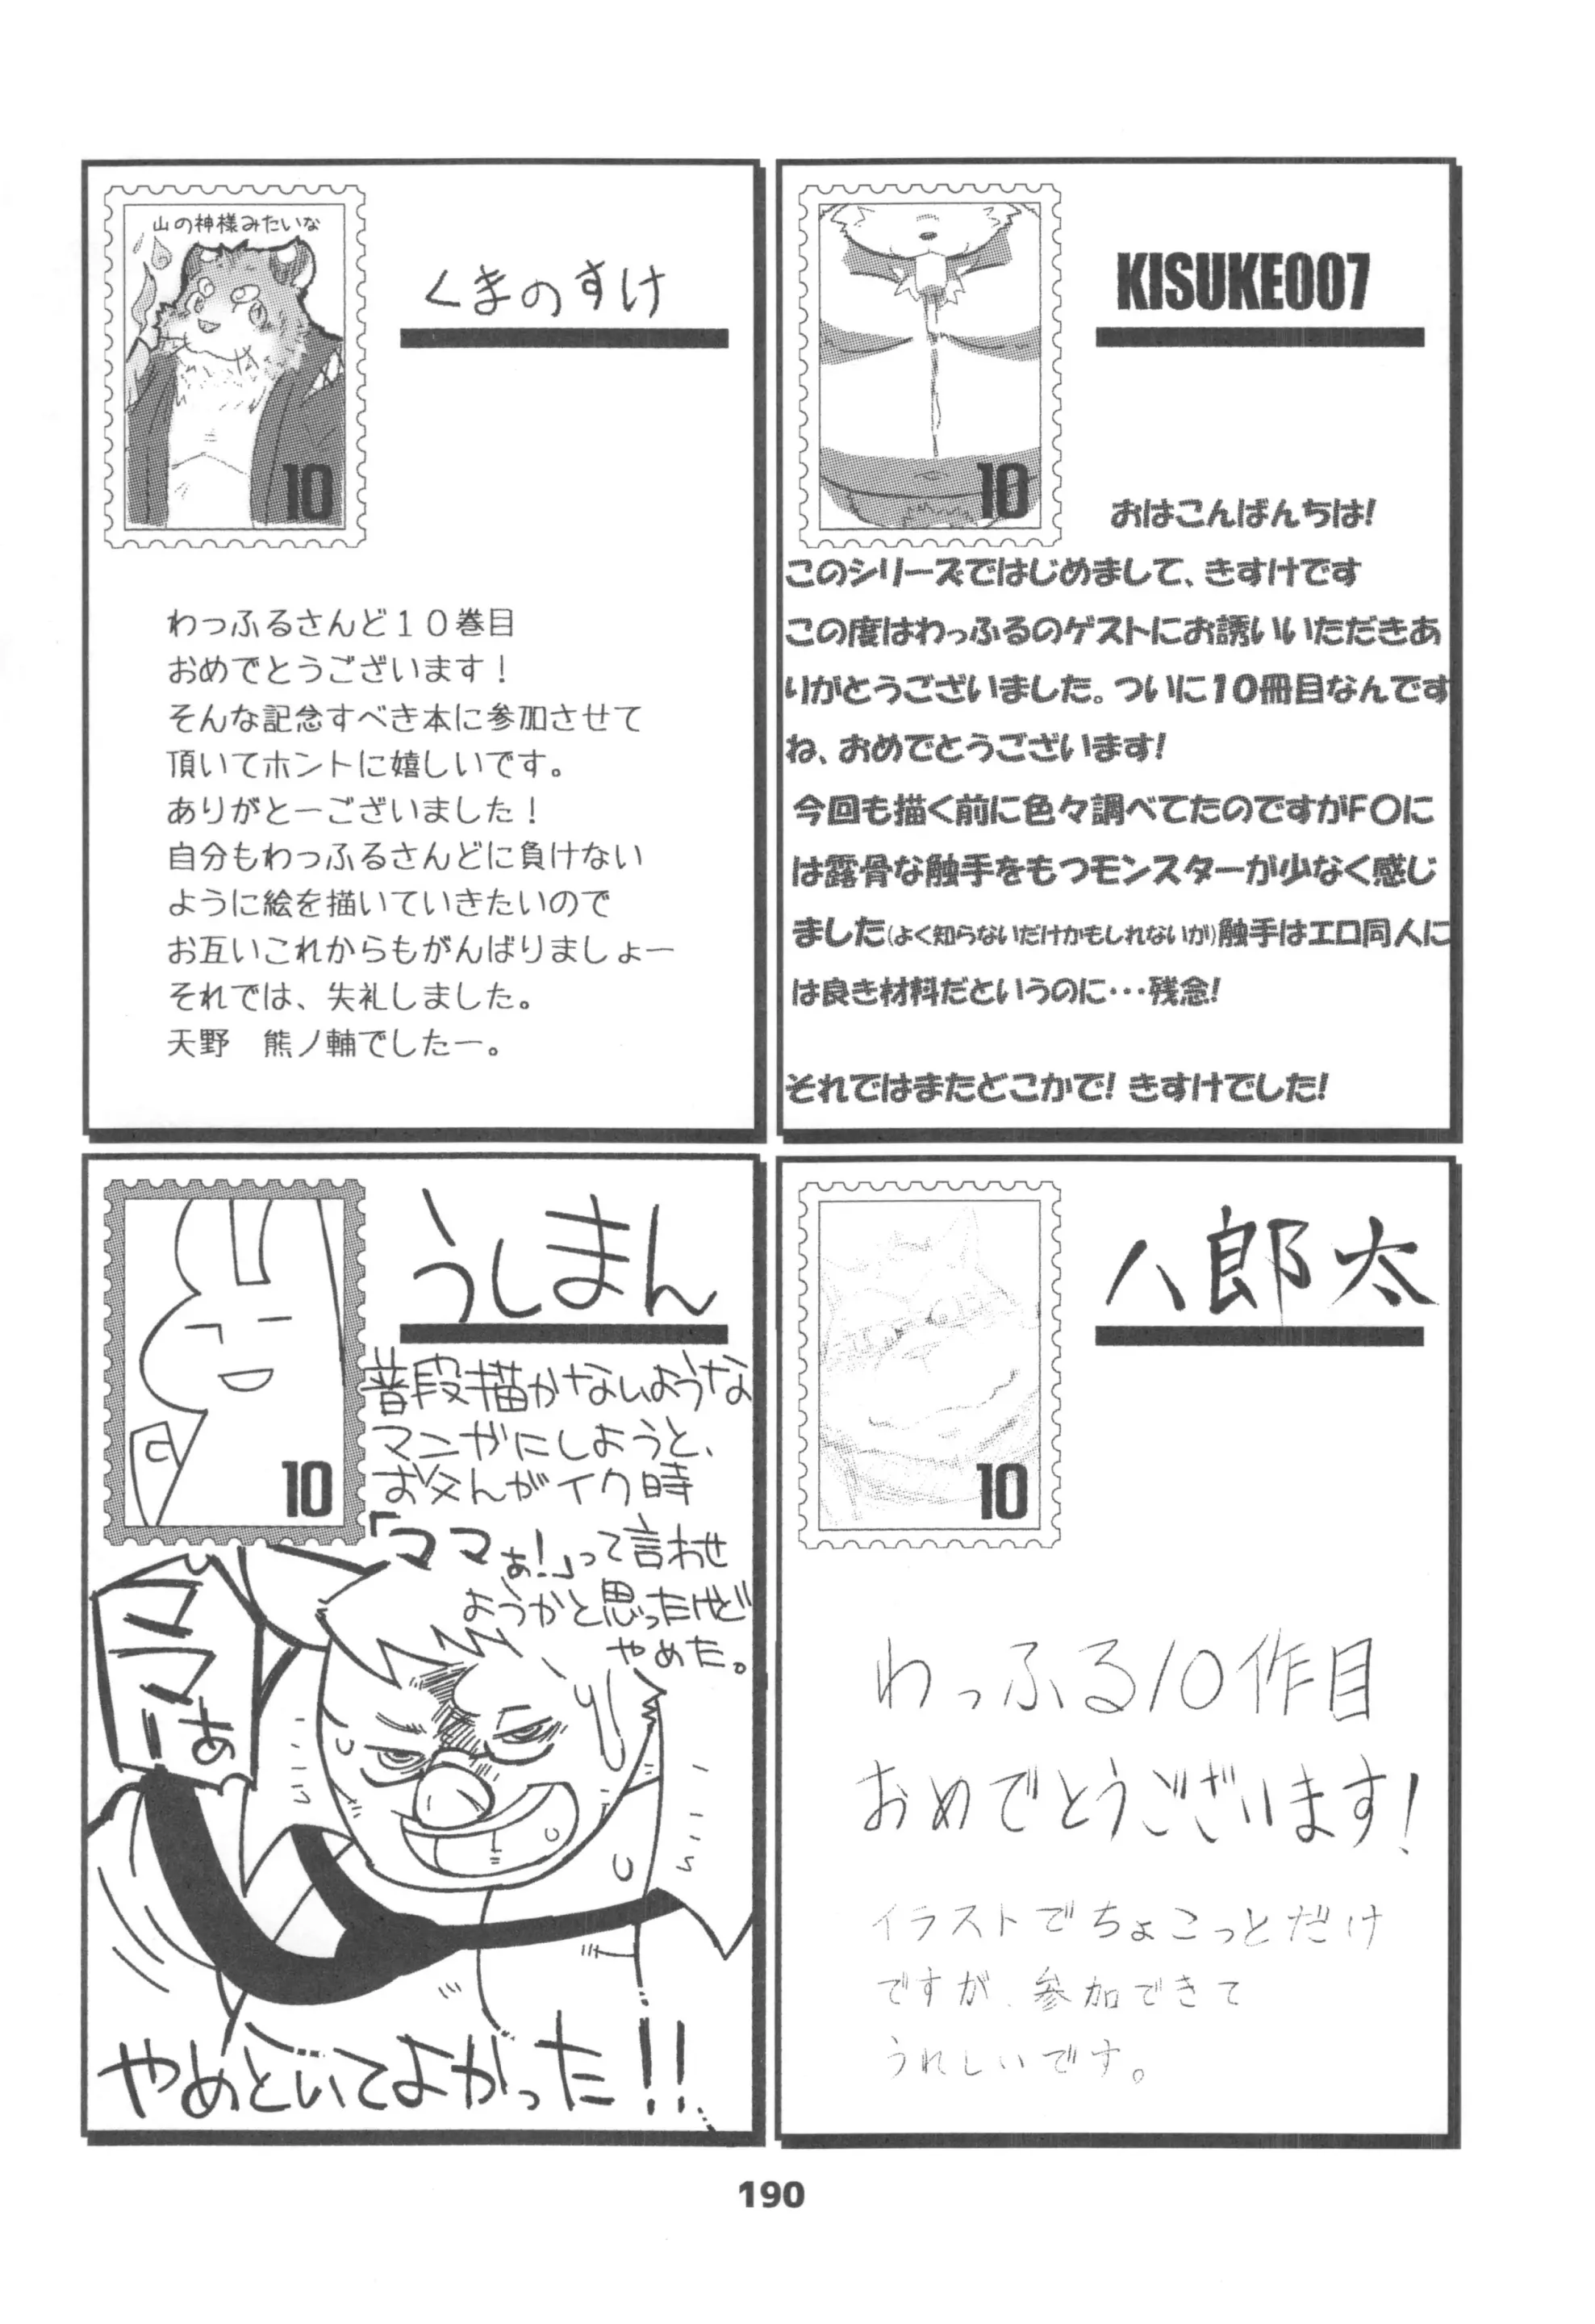 山の神様みたいな
10
くまのすけ
わっふるさんど１０巻目
おめでとうございます！
そんな記念すべき本に参加させて
頂いてホントに嬉しいです。
ありがとーございました！
自分もわっふるさんどに負けない
ように絵を描いていきたいので
お互いこれからもがんばりましょー
それでは、失礼しました。
天野　熊ノ輔でしたー。
10
KISUKE007
おはこんばんちは!
このシリーズではじめまして、きすけです
この度はわっふるのゲストにお誘いいただきあ
りがとうございました。ついに10冊目なんです
ね、おめでとうございます!
今回も描く前に色々調べてたのですがF〇に
は露骨な触手をもつモンスターが少なく感じ
ました(よく知らないだけかもしれないが)触手はエロ同人に
は良き材料だというのに・・・残念!
それではまたどこかで! きすけでした!
10
うしまん
普段描かないような
マンガにしようと、
お父んがイク時
「ママぁ!」って言わせ
ようかと思ったけど
やめた。
ママーぁ
やめといてよかった!!
10
八郎太
わっふる10作目
おめでとうございます!
イラストでちょこっとだけ
ですが、参加できて
うれしいです。
190